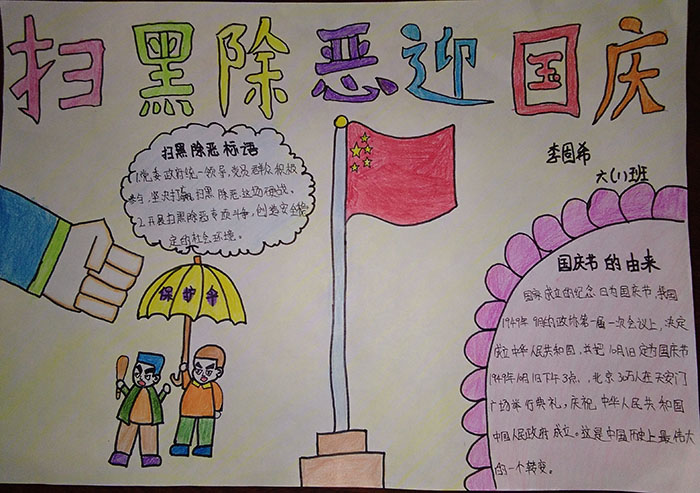 扫黑除恶迎国庆
李固希
六(1)班
扫黑除恶标语
1.党委政府统一领导,党员群众积极
参与,坚决打赢扫黑除恶这场硬战。
2.开展扫黑除恶专项斗争,创造安全稳
定的社会环境。
保护伞
国庆节的由来
国家成立的纪念日为国庆节,我国
1949年9月的政协第一届一次会议上,决定
成立中华人民共和国,并把10月1日定为国庆节
1949年10月1日下午3点,北京30万人在天安门
广场举行典礼,庆祝中华人民共和国
中央人民政府成立。这是中国历史上最伟大
的一个转变。